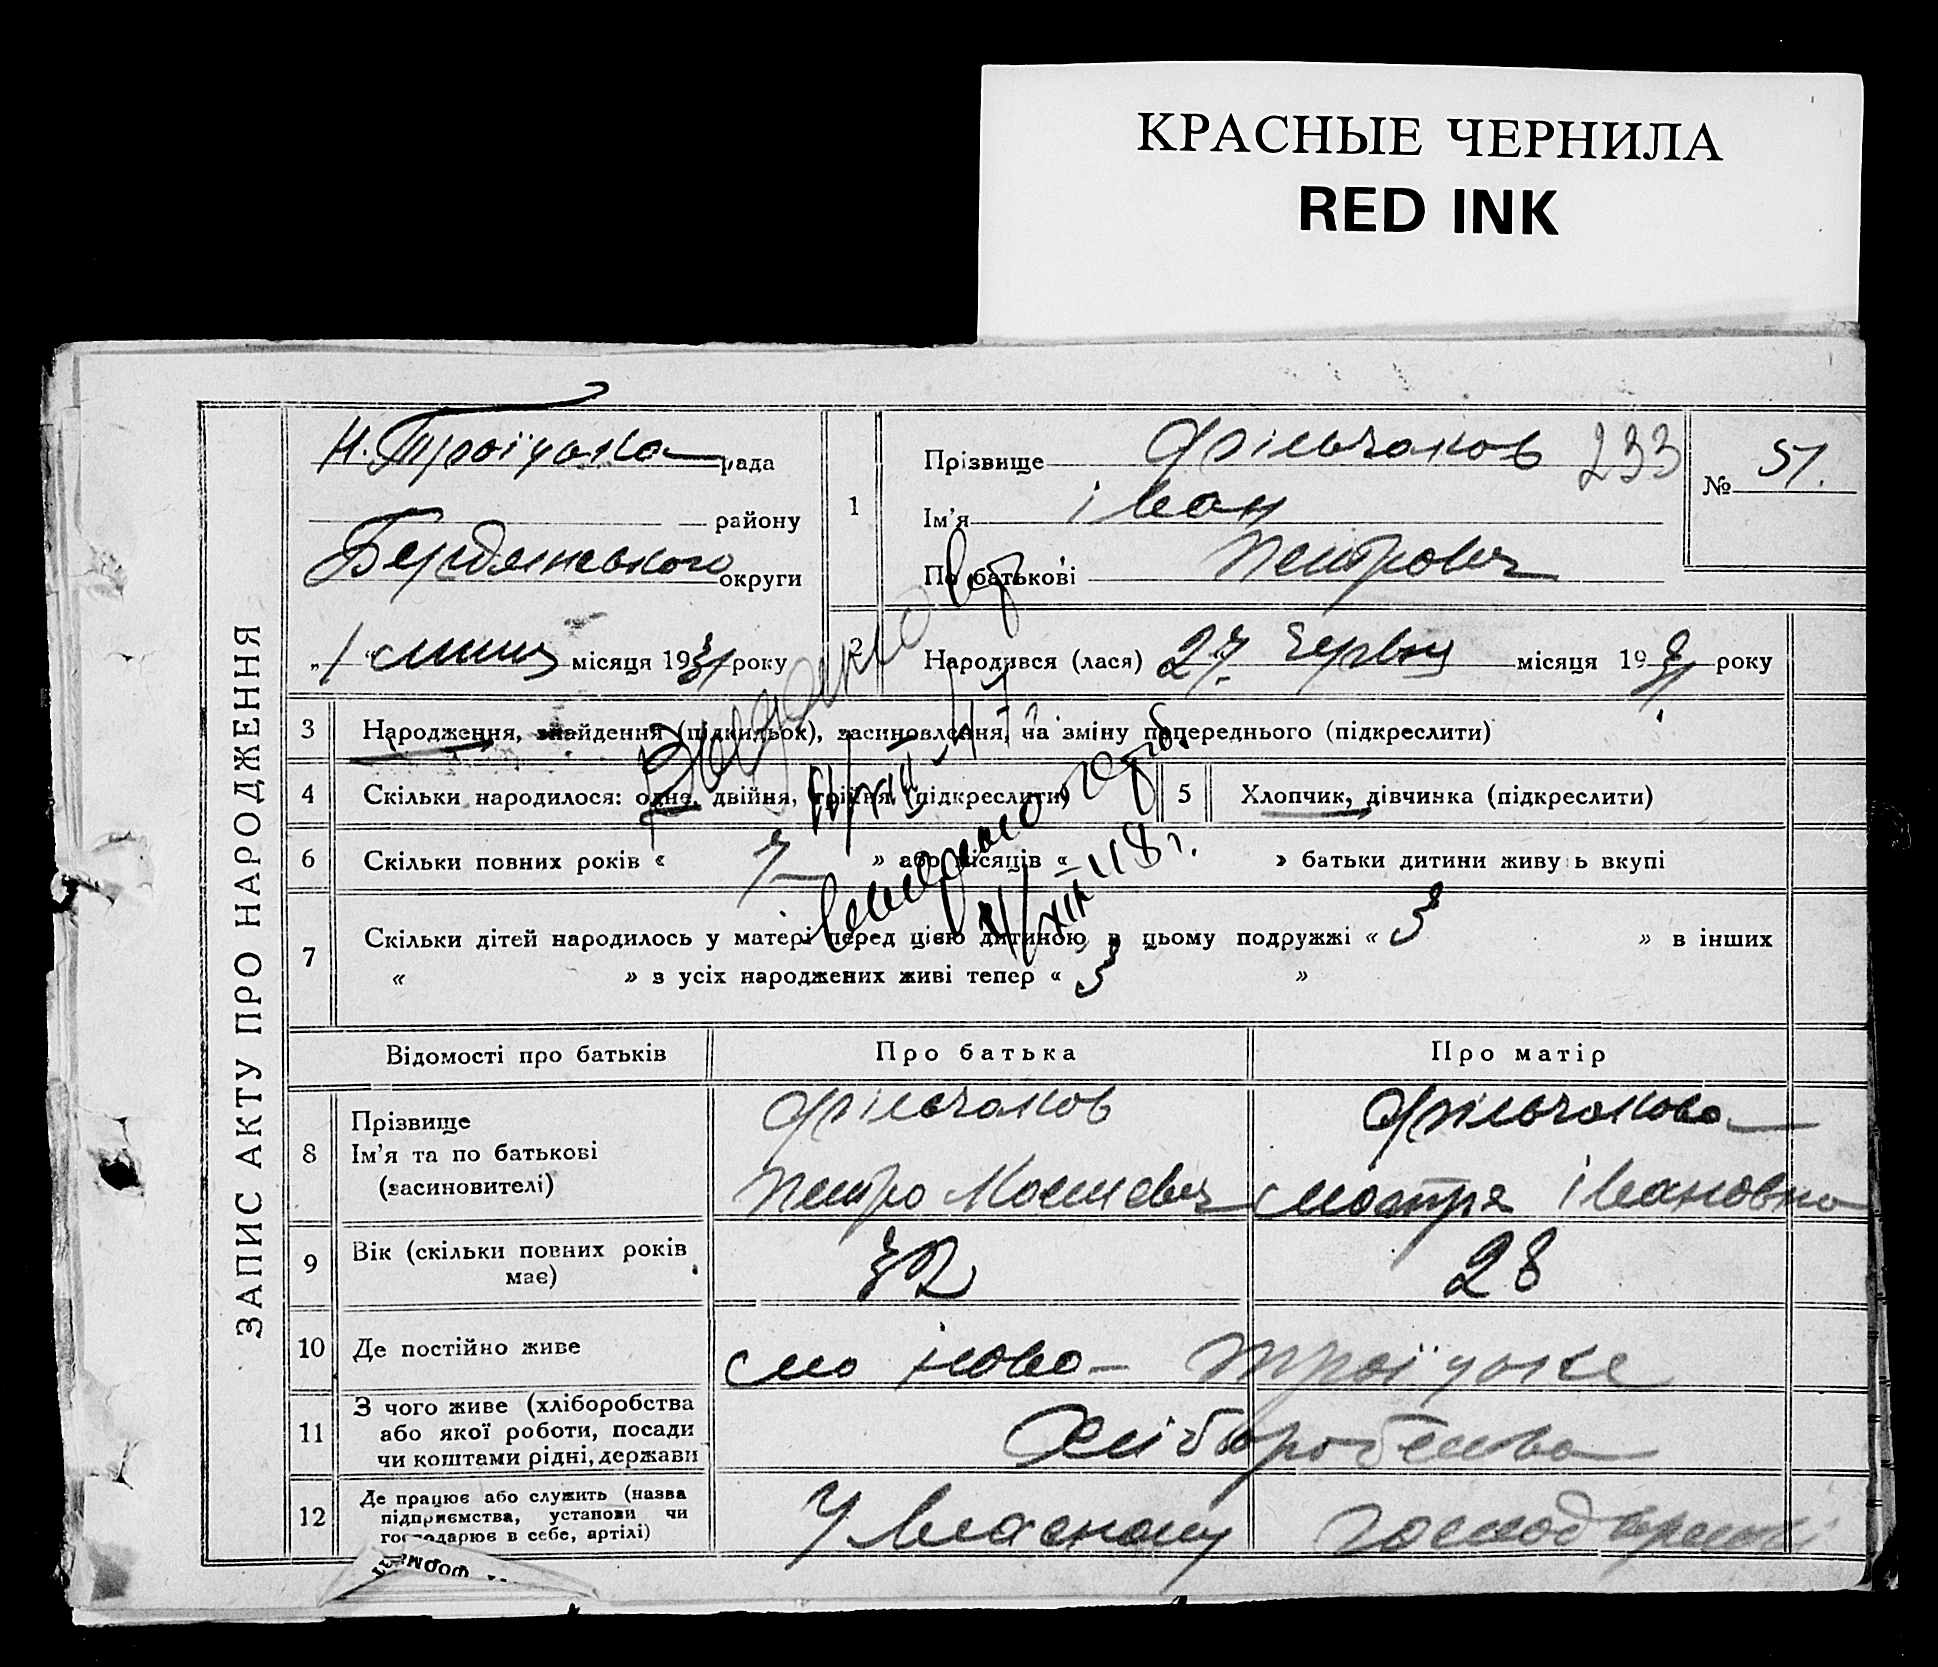 КРАСНЫЕ ЧЕРНИЛА
RED INK
ЗАПИС АКТУ ПРО НАРОДЖЕННЯ
Н. Троїцька рада
району
Бердянського округи
„1“ липця місяця 1931 року
1
Прізвище Фільчаков 233
Ім'я Іван
По батькові Петрович
№ 51.
2
Народився (лася) 27. Червця місяця 1931 року
3 Народження, знайдення (підкильок), засиновлення, на зміну попереднього (підкреслити)
4 Скільки народилося: одне, двійня, трійня, (підкреслити)
5 Хлопчик, дівчинка (підкреслити)
6 Скільки повних років « 7 » або місяців « » батьки дитини живуть вкупі
7 Скільки дітей народилось у матері перед цією дитиною, в цьому подружжі « 3 » в інших
« » з усіх народжених живі тепер « 3 »
повторно
48 г.
Відомості про батьків Про батька Про матір
8 Прізвище
Ім'я та по батькові
(засиновителі)
Фільчаков Фільчакова
Петро Івановна
9 Вік (скільки повних років
має)
32 28
10 Де постійно живе
село Ново- Троїцьке
11 З чого живе (хліборобства
або якої роботи, посади
чи коштами рідні, держави
Хліборобства
12 Де працює або служить (назва
підприємства, установи чи
господарює в себе, артілі)
У власному господарстві